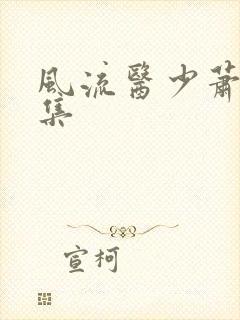 風流醫少蕭
集
宣柯